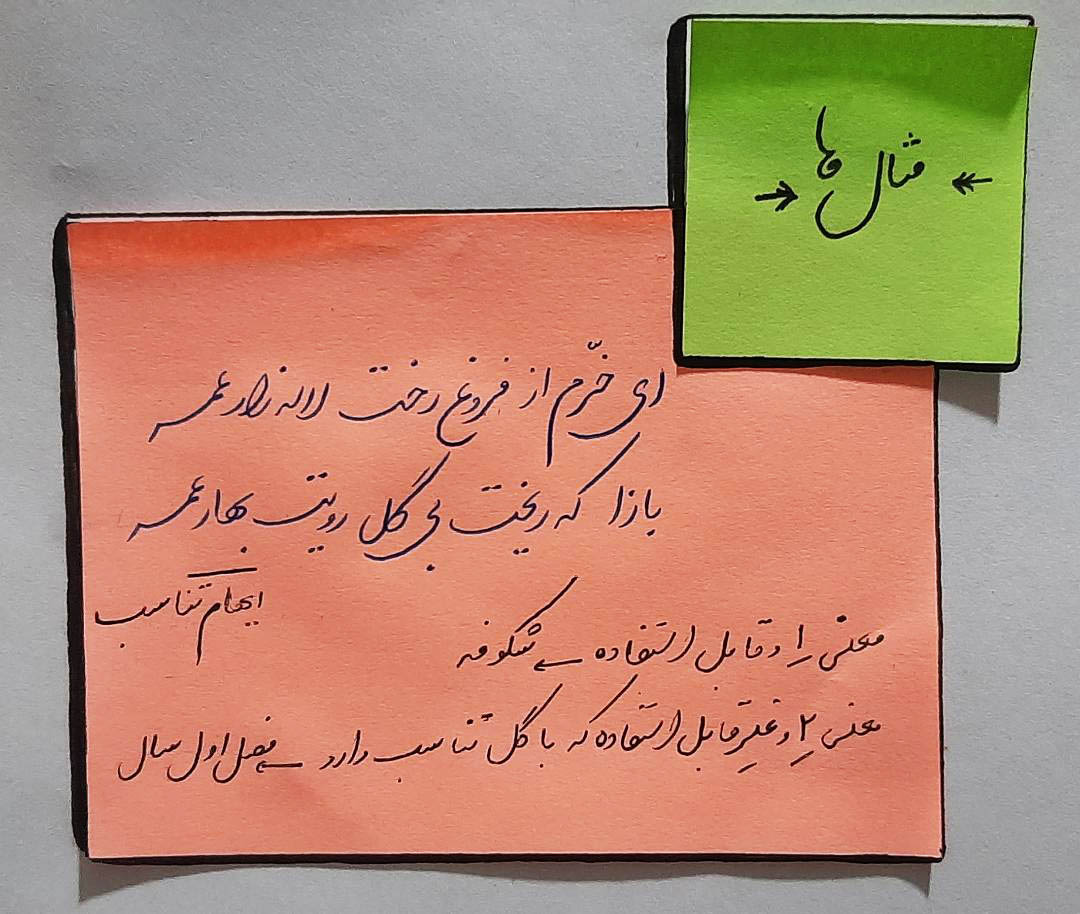 مثال ها
ای خرّم از فروغ رخت لاله زار عمر
بازا که ریخت بی گل رویت بهار عمر
ایهام تناسب
معنی ۱ و قابل استفاده ← شکوفه
معنی ۲ و غیرِ قابل استفاده که با گل تناسب دارد ← فصل اول سال